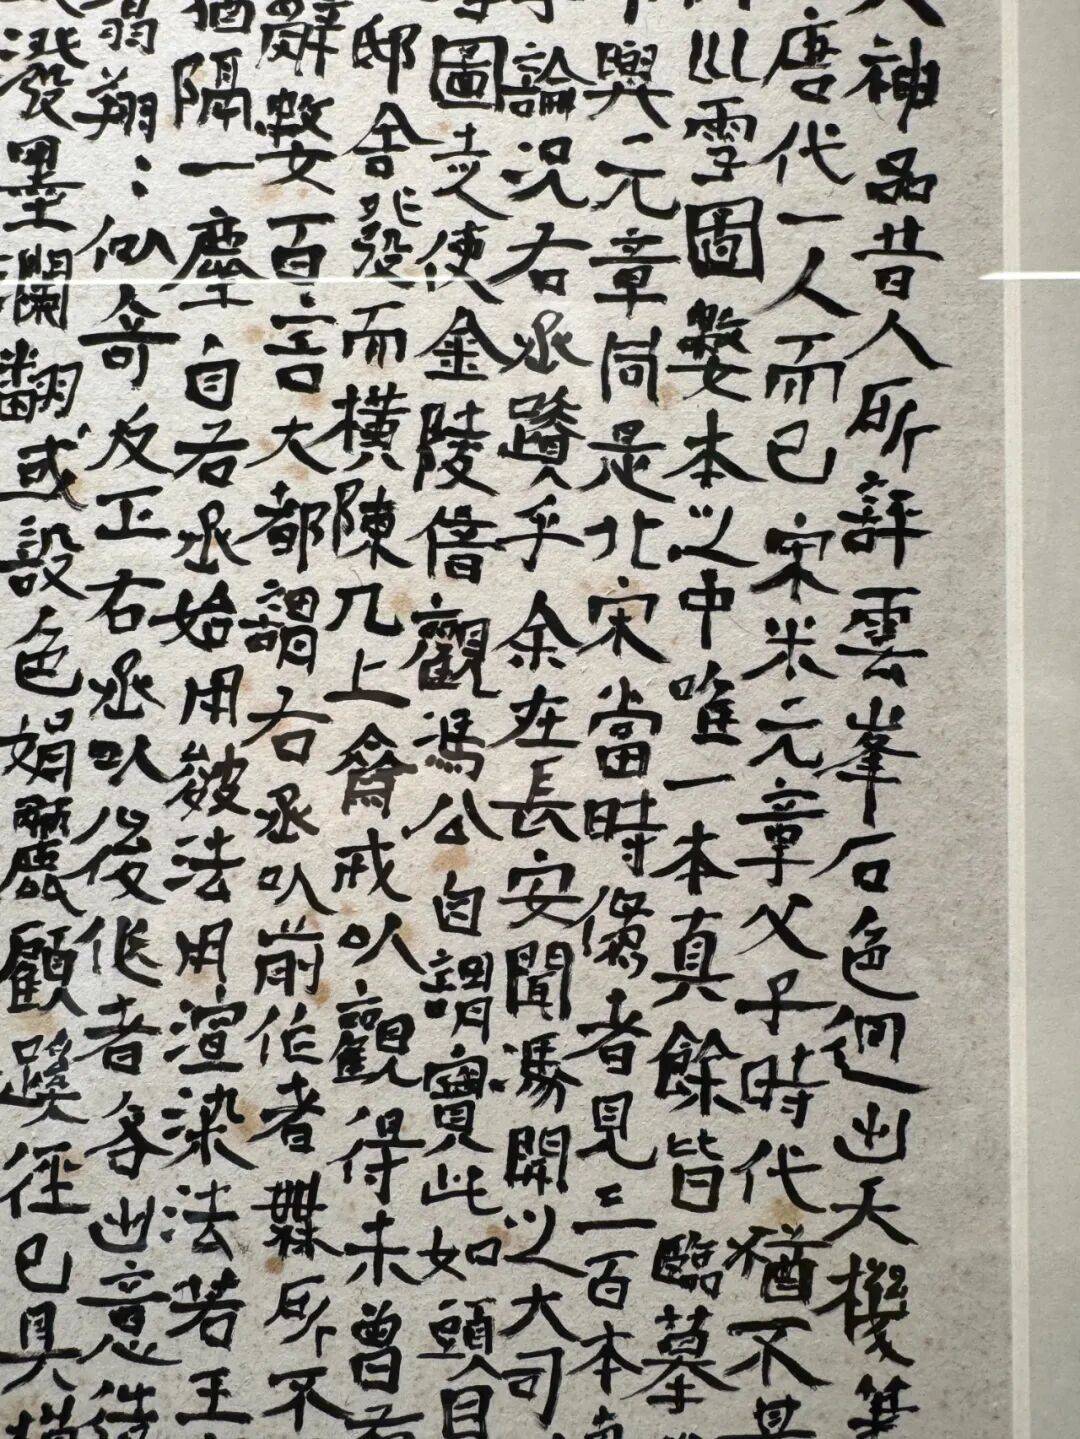 神品昔人所評雲峯石色迥出天機筆
唐代一人而已宋米元章父子時代猶不甚
川雪圖數本之中唯一本真餘皆臨摹
與元章同是北宋當時僞者見三百本
論況右丞蹟乎余在長安聞馮開之大司
圖走使金陵借觀馮公自謂寶此如頭目
邸舍發而橫陳几上齋戒以觀得未曾有
辭數百言大都謂右丞以前作者無所不
猶隔一塵自右丞始用皴法用渲染法若王
翔〻似奇反正右丞以後作者各出意
潑墨瀾翻或設色娟麗顧蹊徑已具模